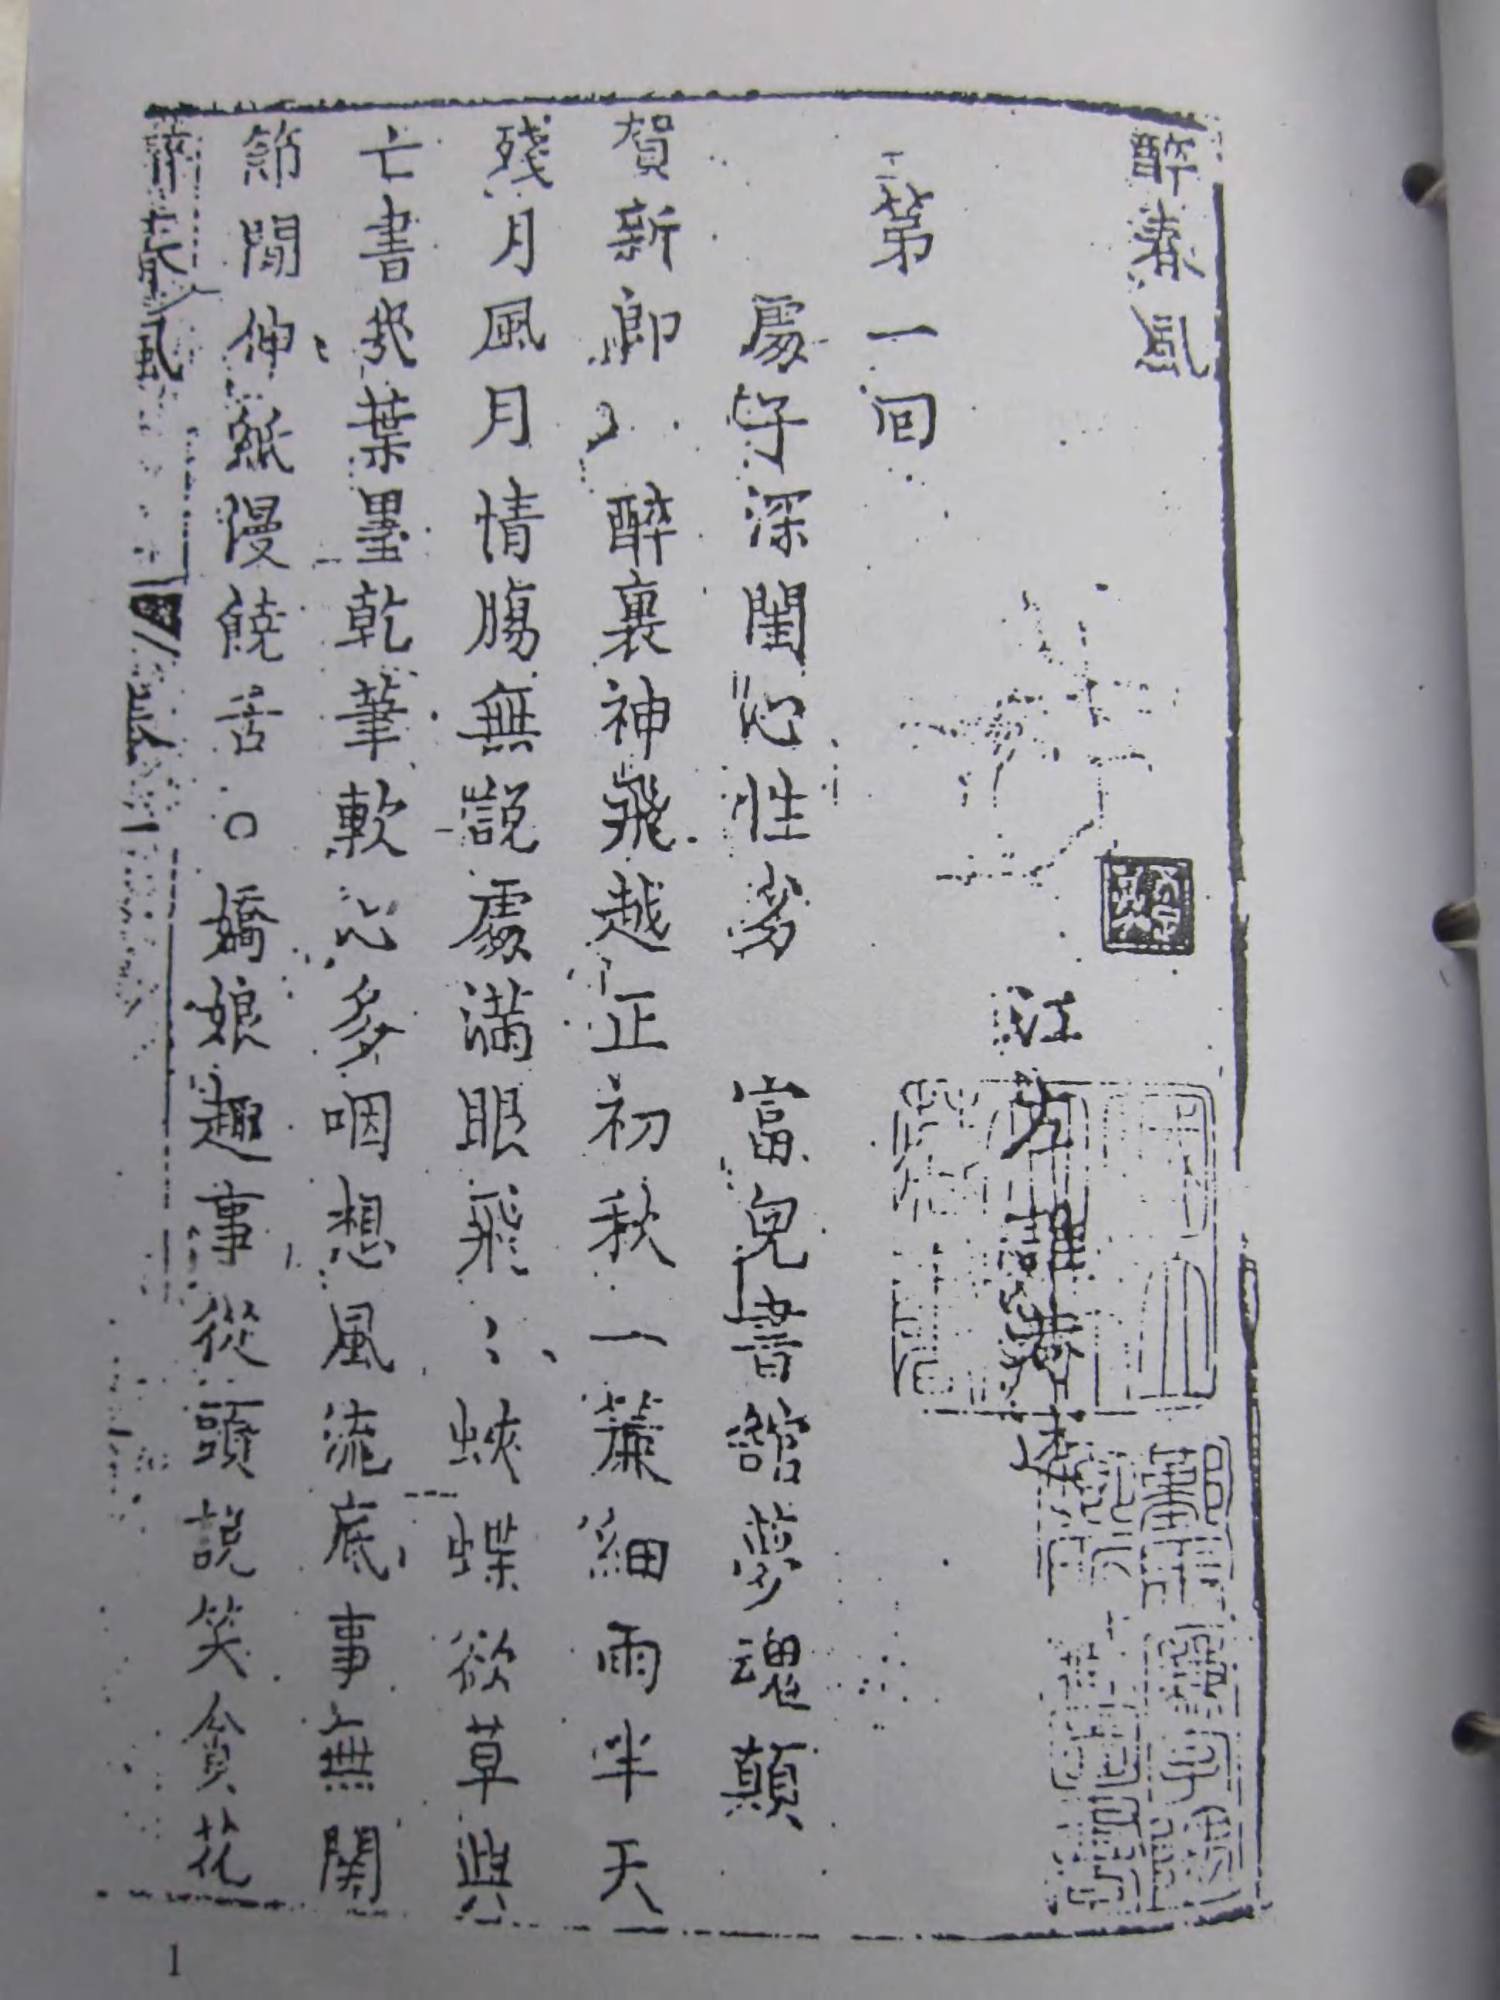 醉春風
江左誰菴述
第一回
處子深閨心性劣 富兒書館夢魂顛
賀新郎 醉裏神飛越正初秋一簾細雨半天
殘月風月情腸無説處滿眼飛〻蛺蝶欲草與
亡書葉墨乾筆軟心多咽想風流底事無關
節閒伸紙漫饒舌。嬌娘趣事從頭說笑貪花
醉春風
1